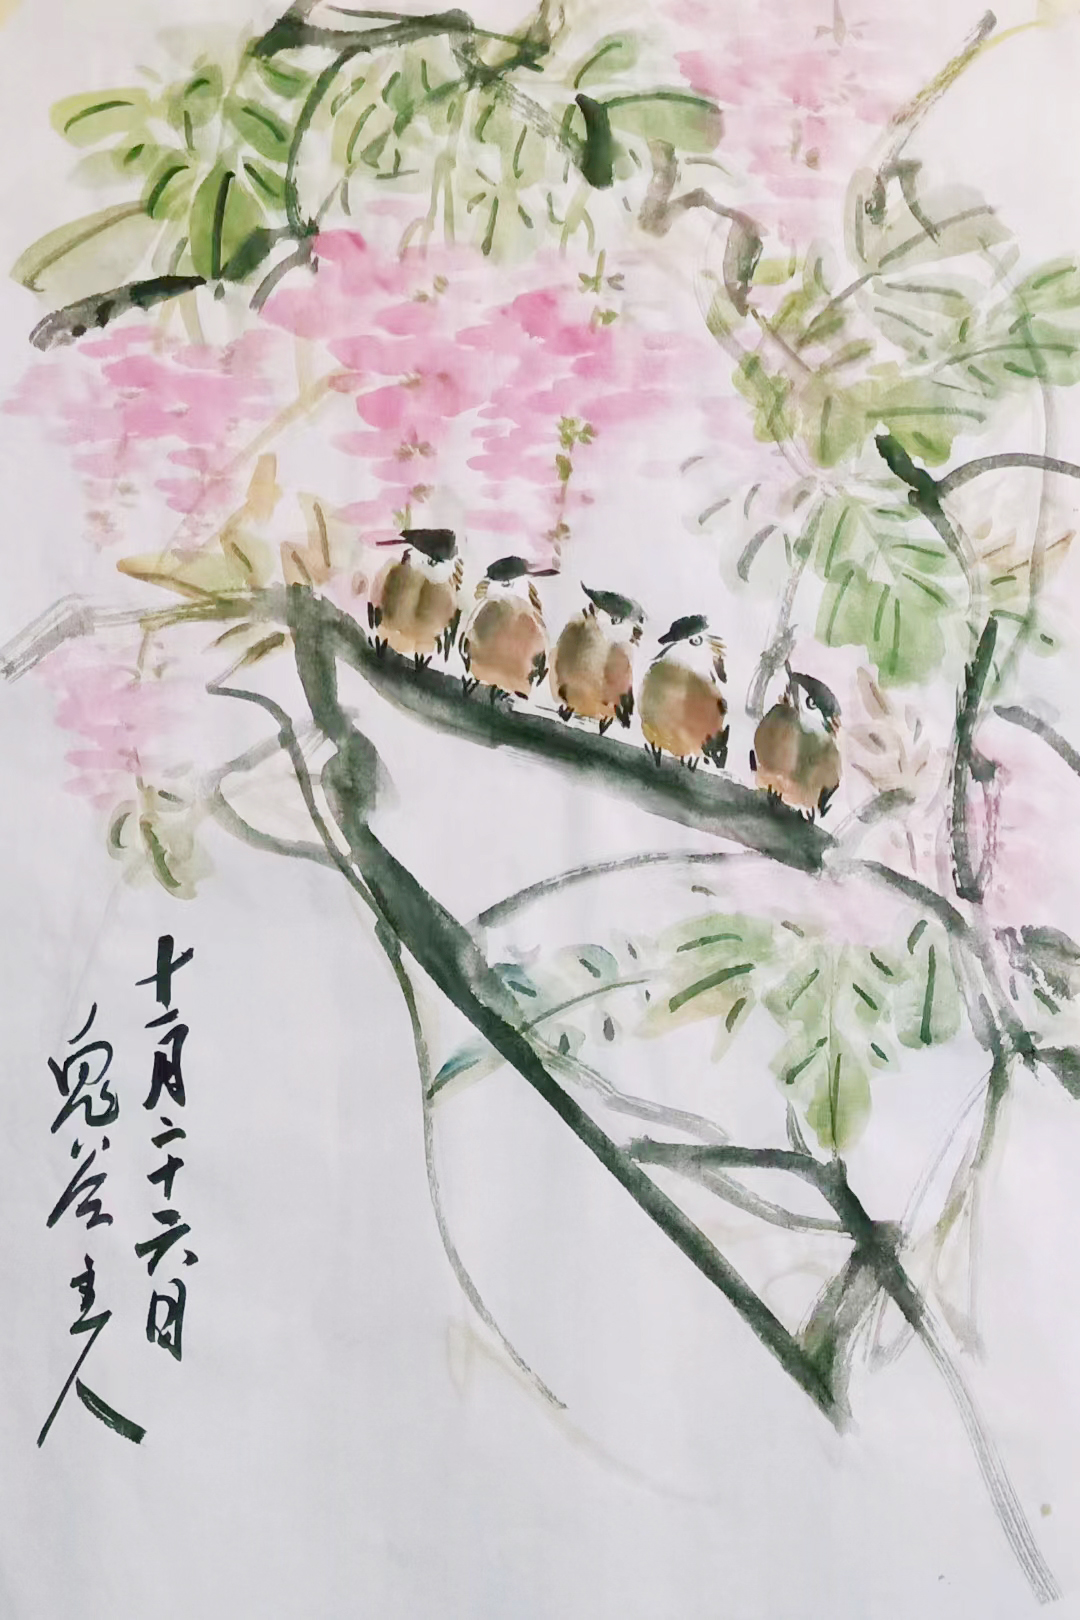 十一月二十六日
鬼谷主人